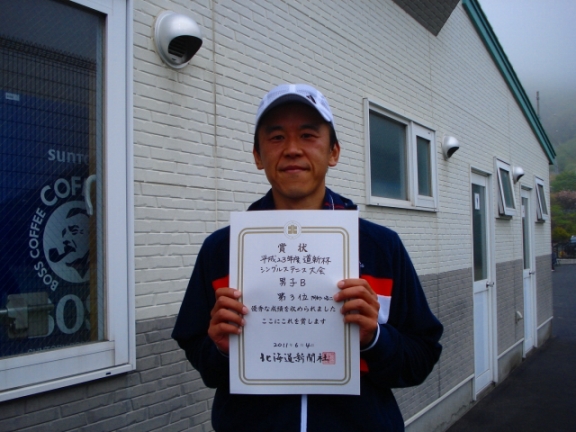 SUNTORY
BOSS COFFEE
COFFEE
BOSS
賞状
平成23年度 道新杯
シングルステニス大会
男子B
第3位
優秀な成績を収められました
ここにこれを賞します
2011.6.4
北海道新聞社